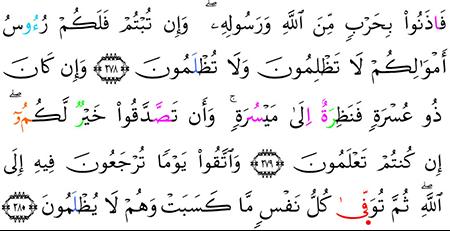 فَاذَنُوا۟ بِحَرْبٍ مِّنَ ٱللَّهِ وَرَسُولِهِۦ ۖ وَإِن تُبْتُمْ فَلَكُمْ رُءُوسُ
أَمْوَٰلِكُمْ لَا تَظْلِمُونَ وَلَا تُظْلَمُونَ ٢٧٨ وَإِن كَانَ
ذُو عُسْرَةٍ فَنَظِرَةٌ اِلَىٰ مَيْسُرَةٍ ۚ وَأَن تَصَّدَّقُوا۟ خَيْرٌ لَّكُمُۥٓ ۖ
إِن كُنتُمْ تَعْلَمُونَ ٢٧٩ وَٱتَّقُوا۟ يَوْمًا تُرْجَعُونَ فِيهِ إِلَى
ٱللَّهِ ۖ ثُمَّ تُوَفّٜىٰ كُلُّ نَفْسٍ مَّا كَسَبَتْ وَهُمْ لَا يُظْلَمُونَ ٢٨٠